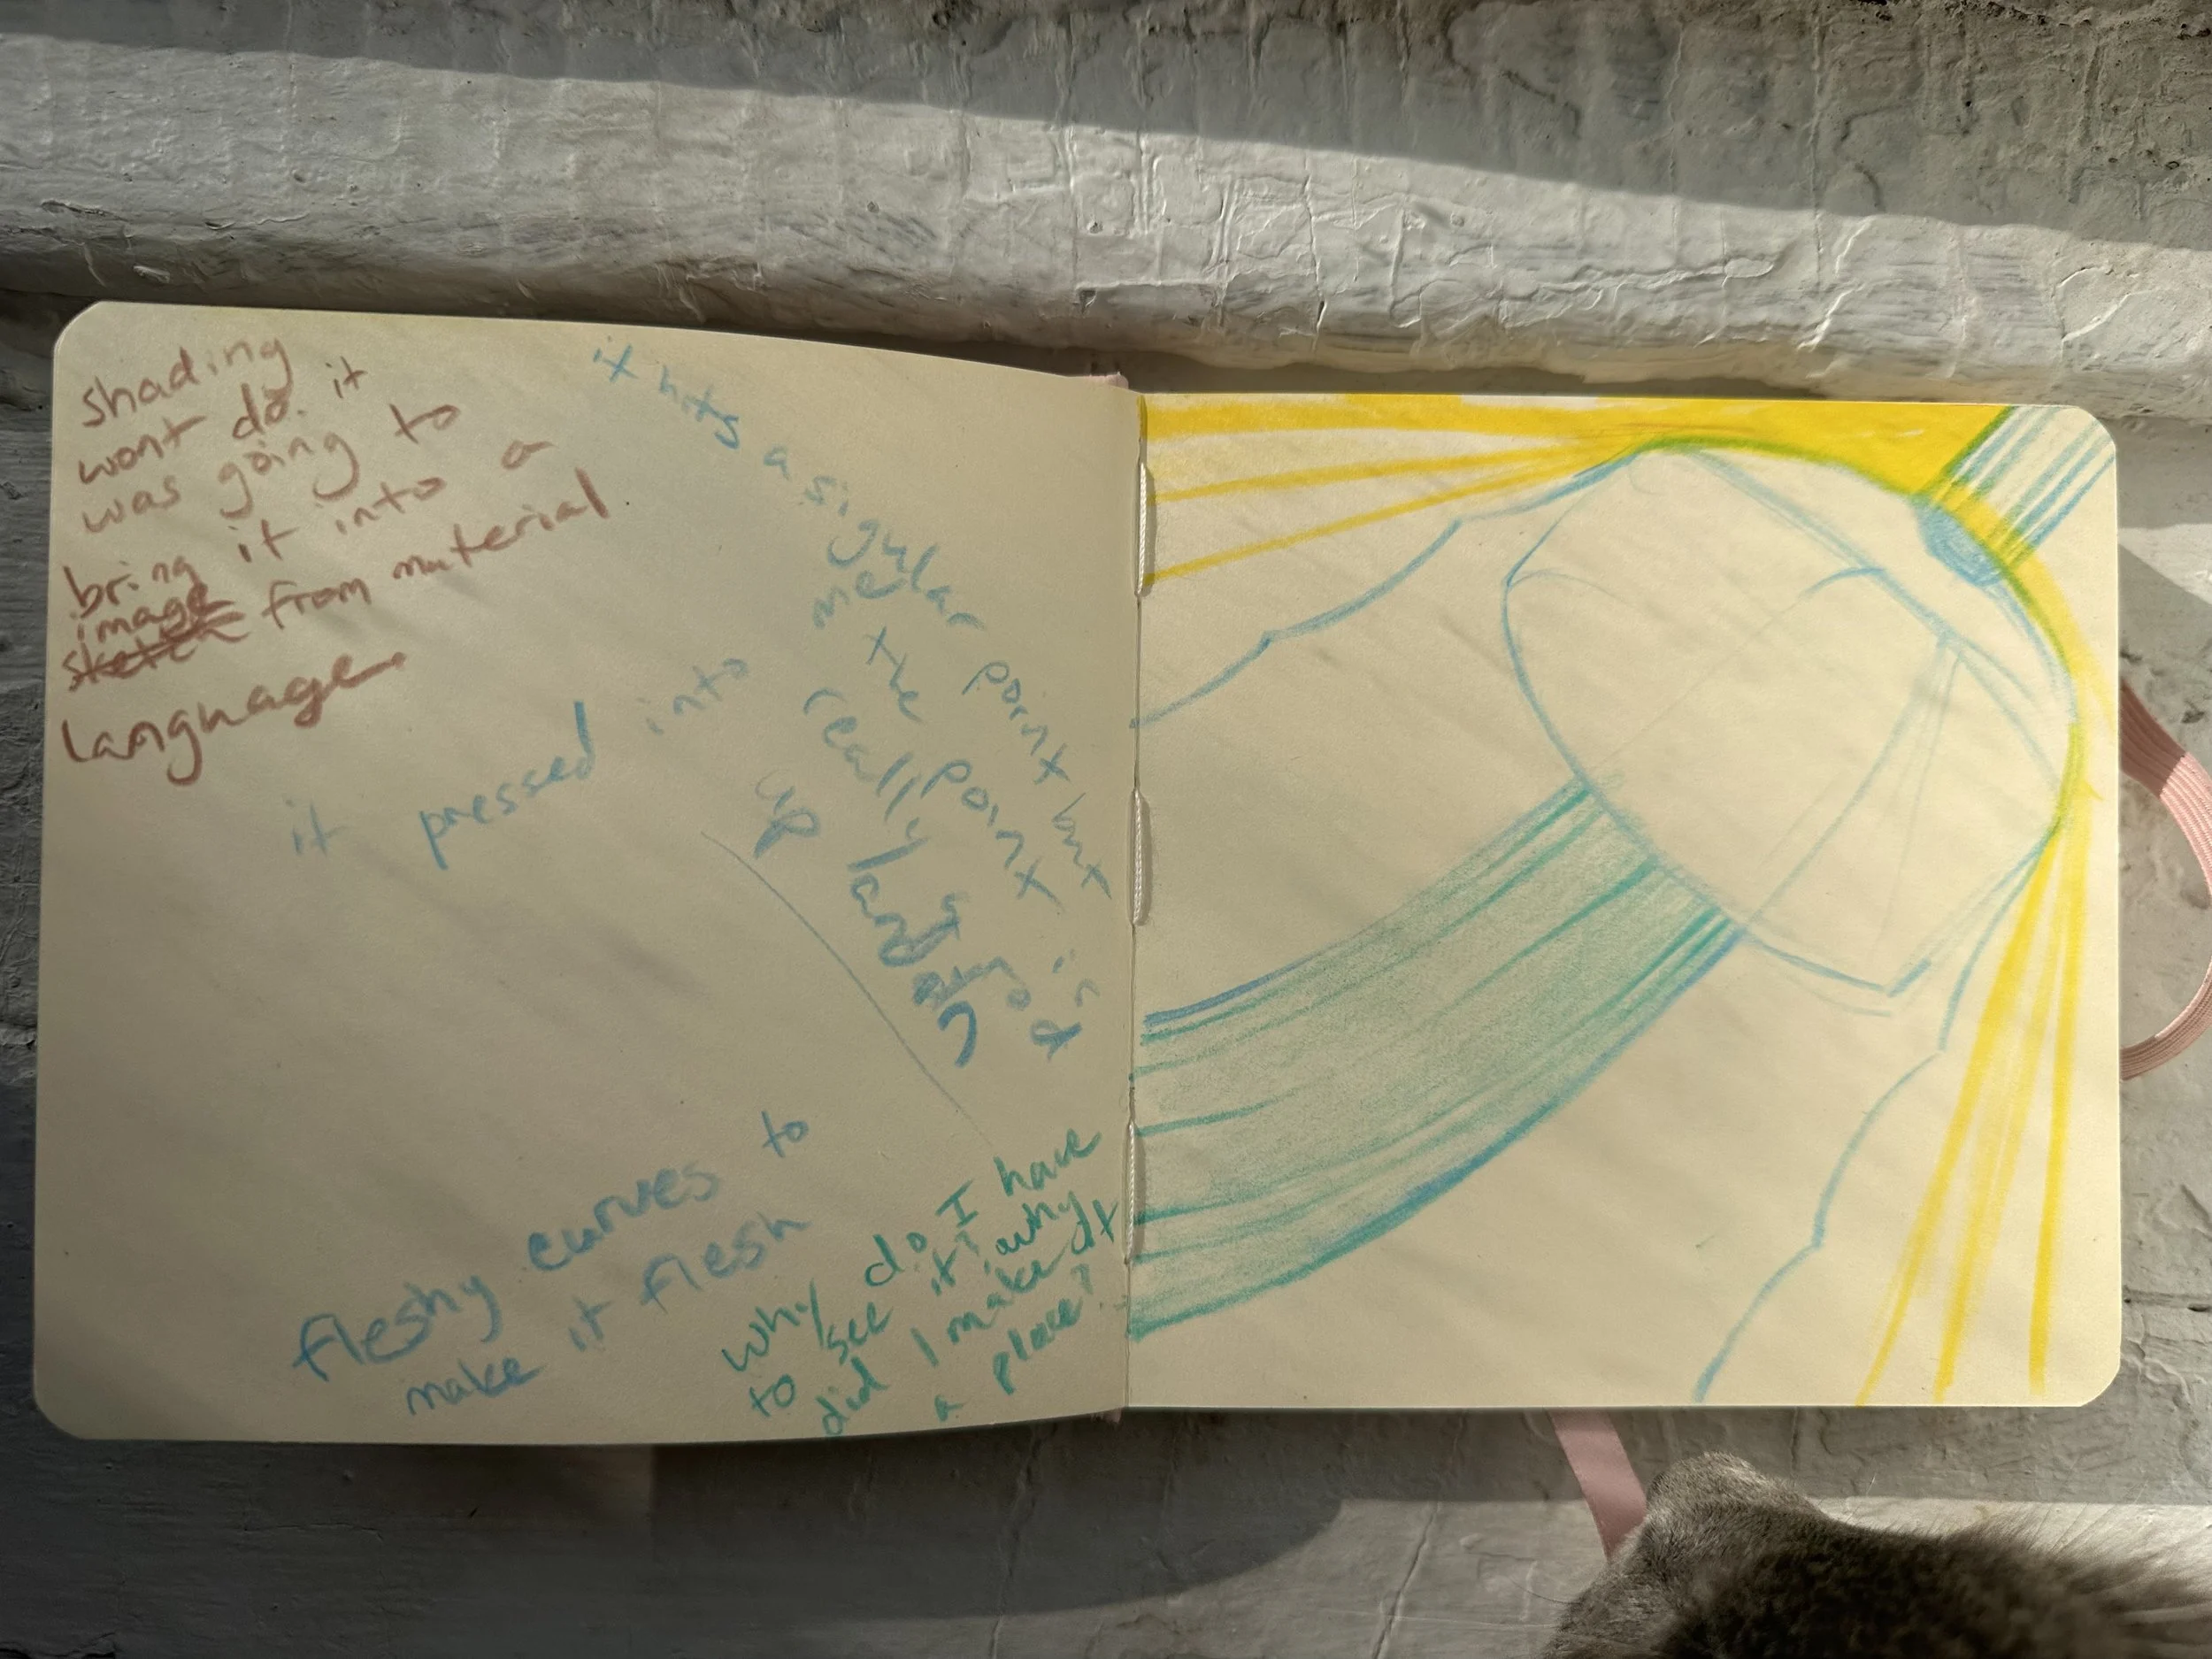 shading
wont do. it
was going to
bring it into a
image
sketch from material
language
it hits a sigular point but
me the point in
really
up
it pressed into
fleshy curves to
make it flesh
why do I have
to see it? why
did I make it
a place?